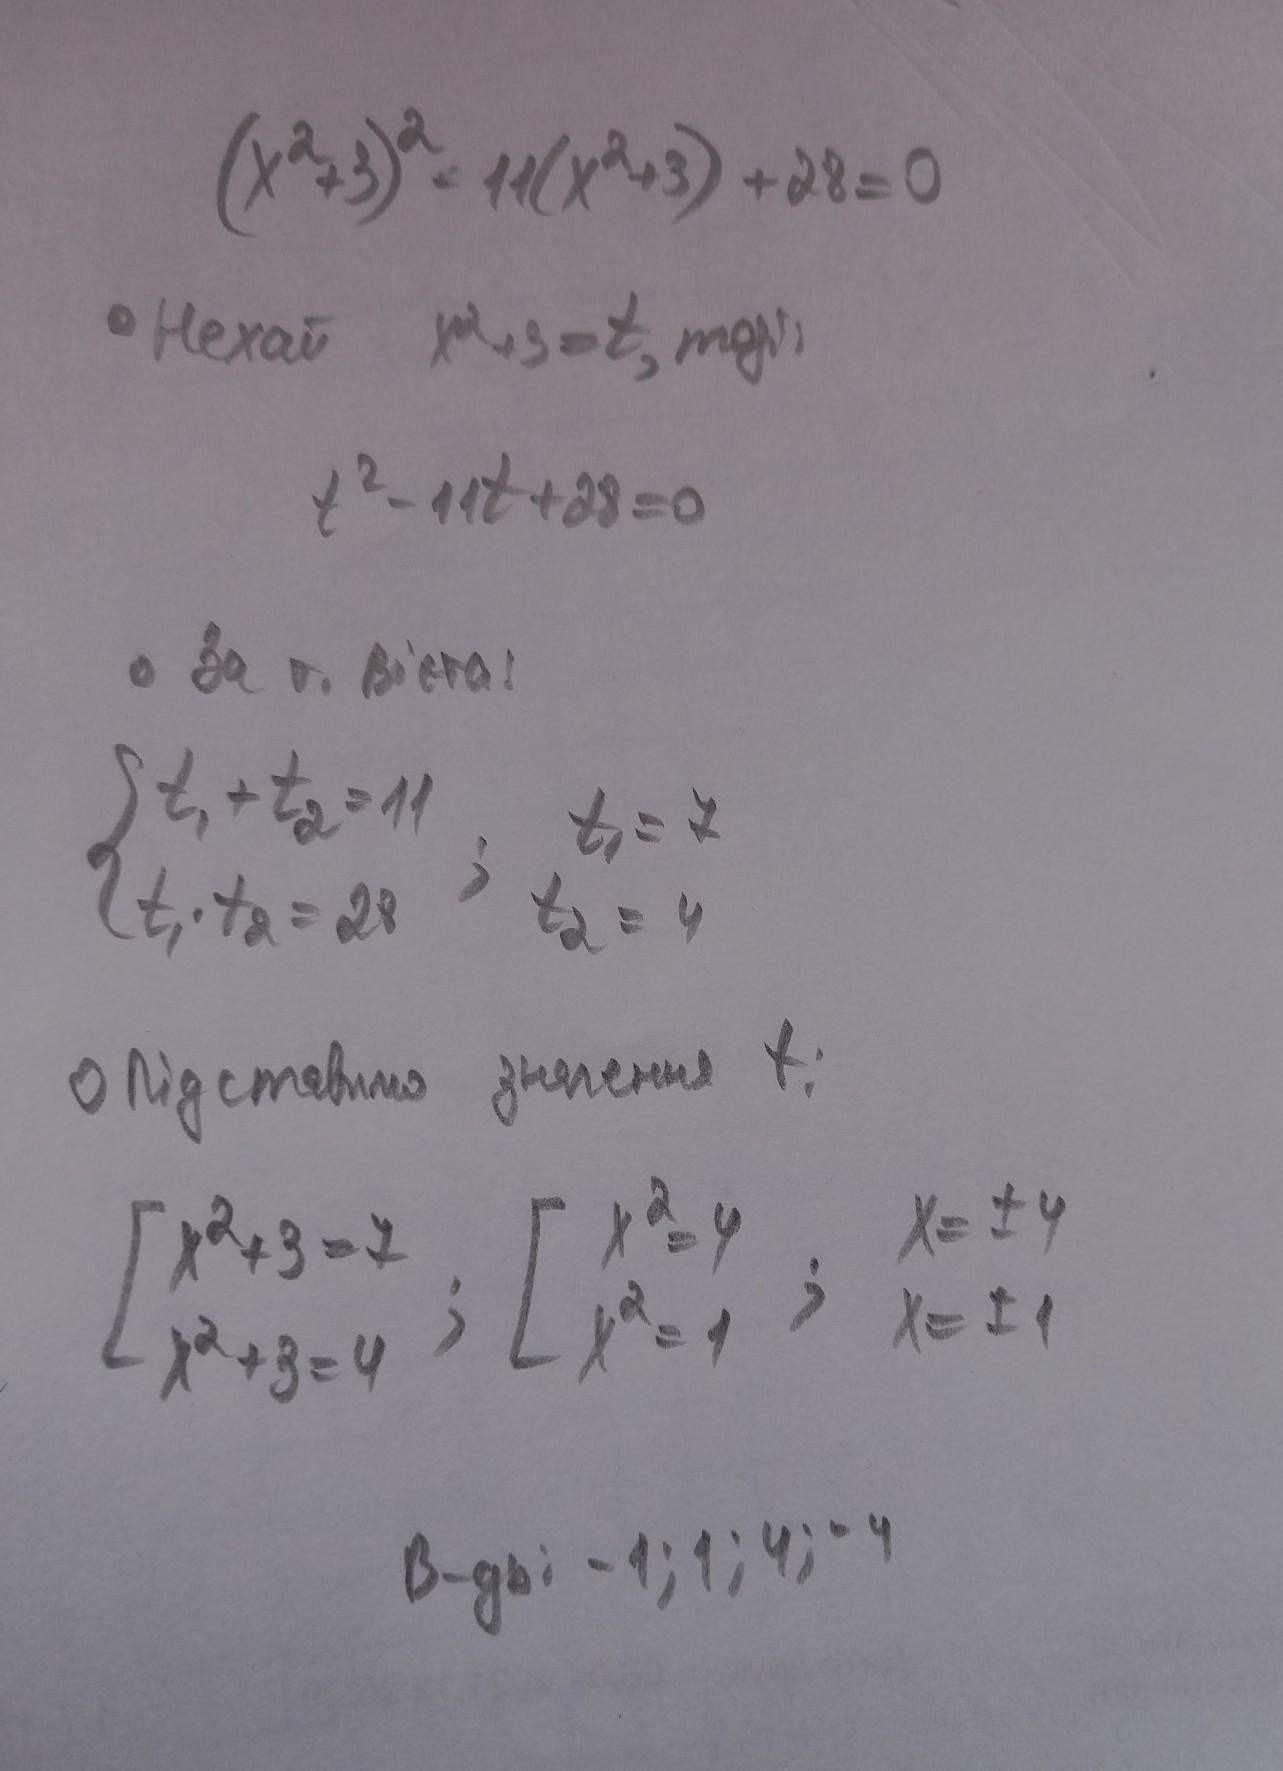 (x²+3)² - 11(x²+3) + 28 = 0
• Нехай x²+3=t, тоді:
t² - 11t + 28 = 0
• За т. Вієта:
{ t₁ + t₂ = 11 ; t₁ = 7
{ t₁ · t₂ = 28 t₂ = 4
• Підставимо значення t:
[ x²+3=7 ; [ x²=4 ; x= ±4
[ x²+3=4 [ x²=1 x= ±1
В-дь: -1; 1; 4; -4